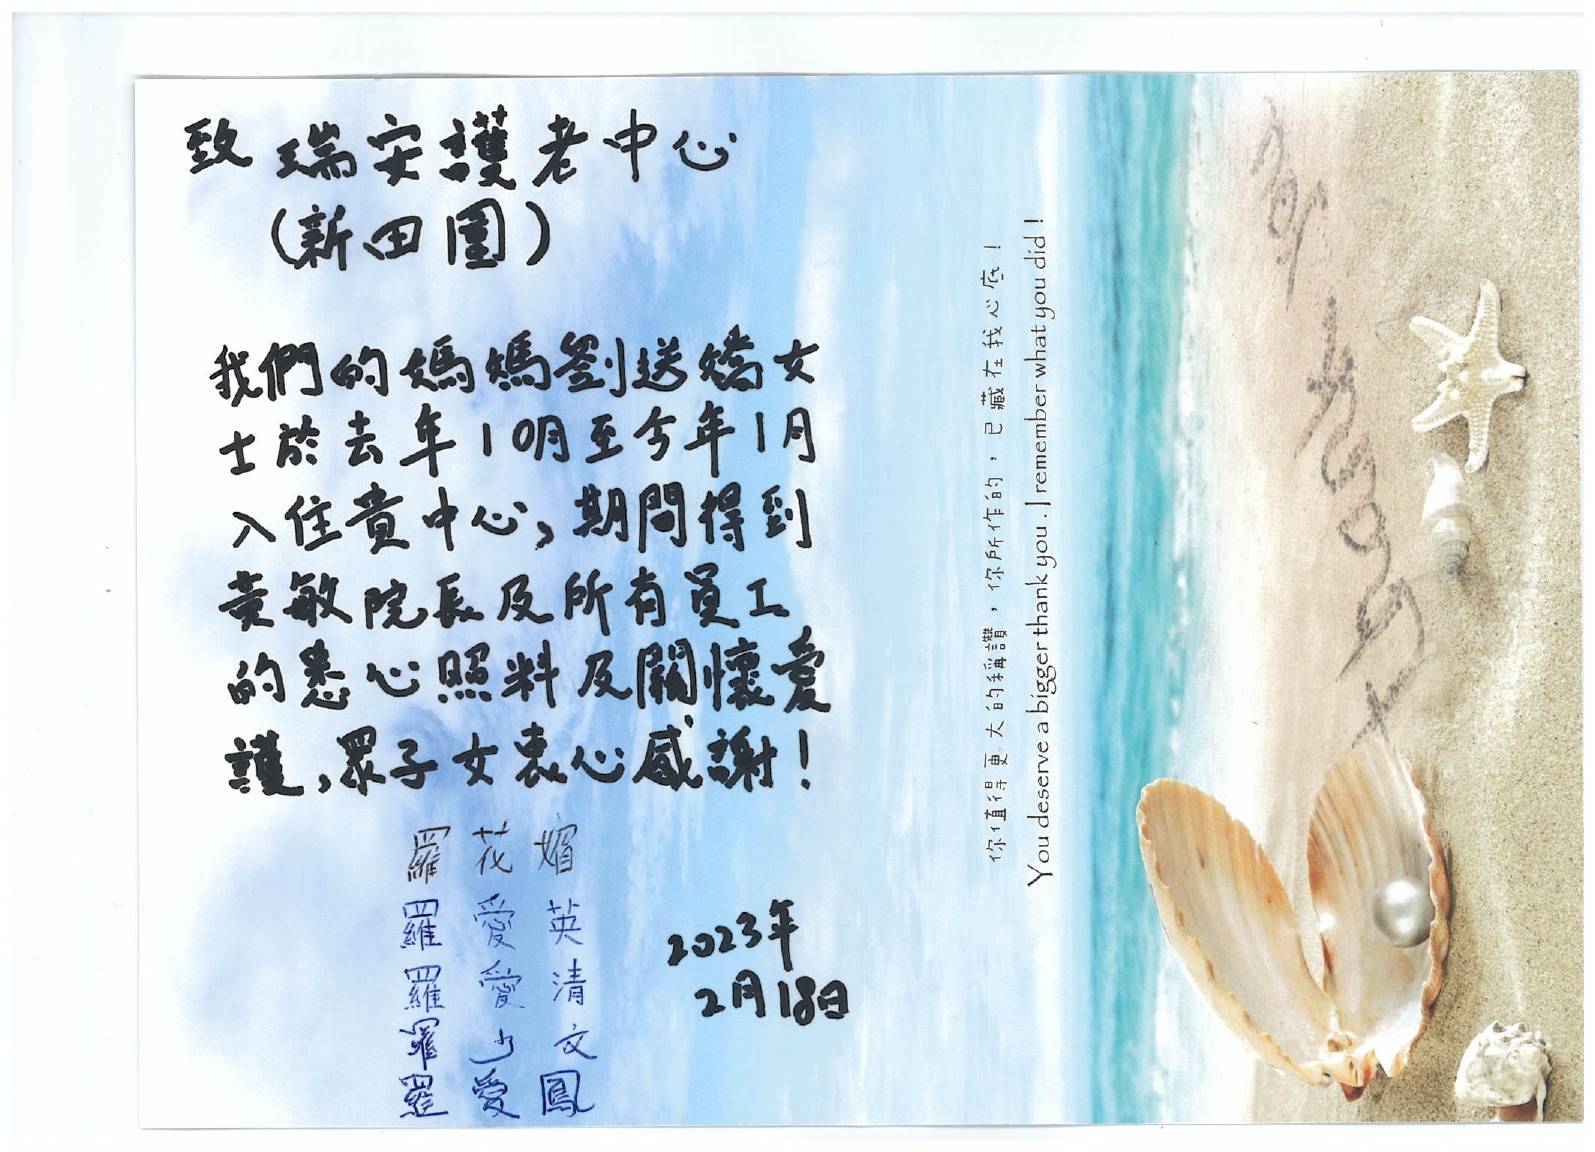 致 瑞安護老中心
(新田圍)
我們的媽媽劉送嬌女
士於去年10月至今年1月
入住貴中心,期間得到
黃敏院長及所有員工
的悉心照料及關懷愛
護,眾子女衷心感謝!
羅花媚
羅愛英
羅愛清
羅少文
羅愛鳳
2023年
2月18日
你值得更大的稱讚,你所作的,已藏在我心底!
You deserve a bigger thank you. I remember what you did!